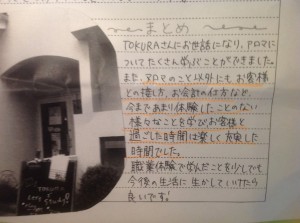 まとめ
TOKURAさんにお世話になり、アロマに
ついてたくさん学ぶことができました。
また、アロマのこと以外にも、お客様
との接し方、お会計の仕方など、
今まであまり体験したことのない
様々なことを学び、お客様と
過ごした時間は楽しく充実した
時間でした。
職業体験で学んだことを少しでも
今後の生活に生かしていけたら
良いです!
TOKURA